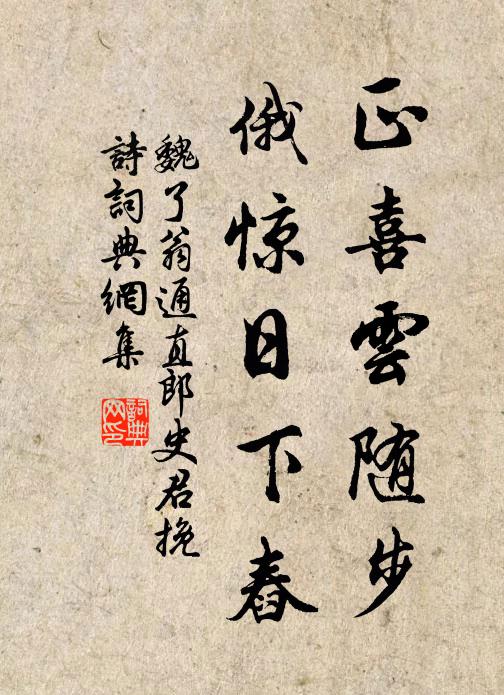 正喜雲随步
俄惊日下舂
魏了翁通直郎史君挽
詩詞典網集
詞典
网印